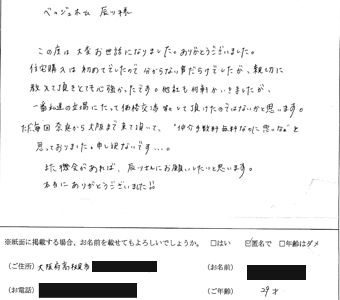 ベルジュホーム 辰川様
この度は大変お世話になりました。ありがとうございました。
住宅購入は初めてでしたので分からない事だらけでしたが、親切に
教えて頂きとても心強かったです。他社も何軒かいきましたが、
一番私達の立場にたって価格交渉等して頂けたのではないかと思います。
ただ毎回奈良から大阪まで来て頂いて、"仲介手数料無料なのに悪いなぁ"と
思っておりました。申し訳ないです…。
また機会があれば、辰川さんにお願いしたいと思います。
本当にありがとうございました!!
※紙面に掲載する場合、お名前を載せてもよろしいでしょうか。 □はい ☑匿名で □年齢はダメ
(ご住所) 大阪府高槻市 (お名前)
(お電話) (ご年齢) 29才